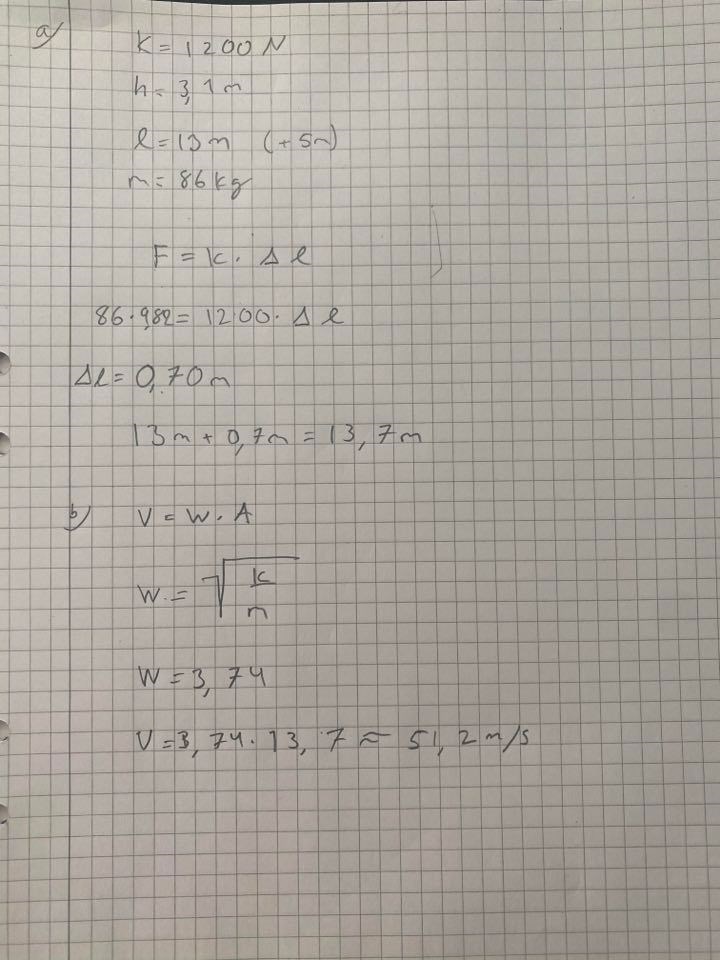 a) K = 1200 N
h = 3,1 m
l = 13 m (+ 5m)
m = 86 kg
F = k · Δl
86 · 9,82 = 1200 · Δl
Δl = 0,70 m
13 m + 0,7 m = 13,7 m
b) V = W · A
W = √(k/m)
W = 3,74
V = 3,74 · 13,7 ≈ 51,2 m/s